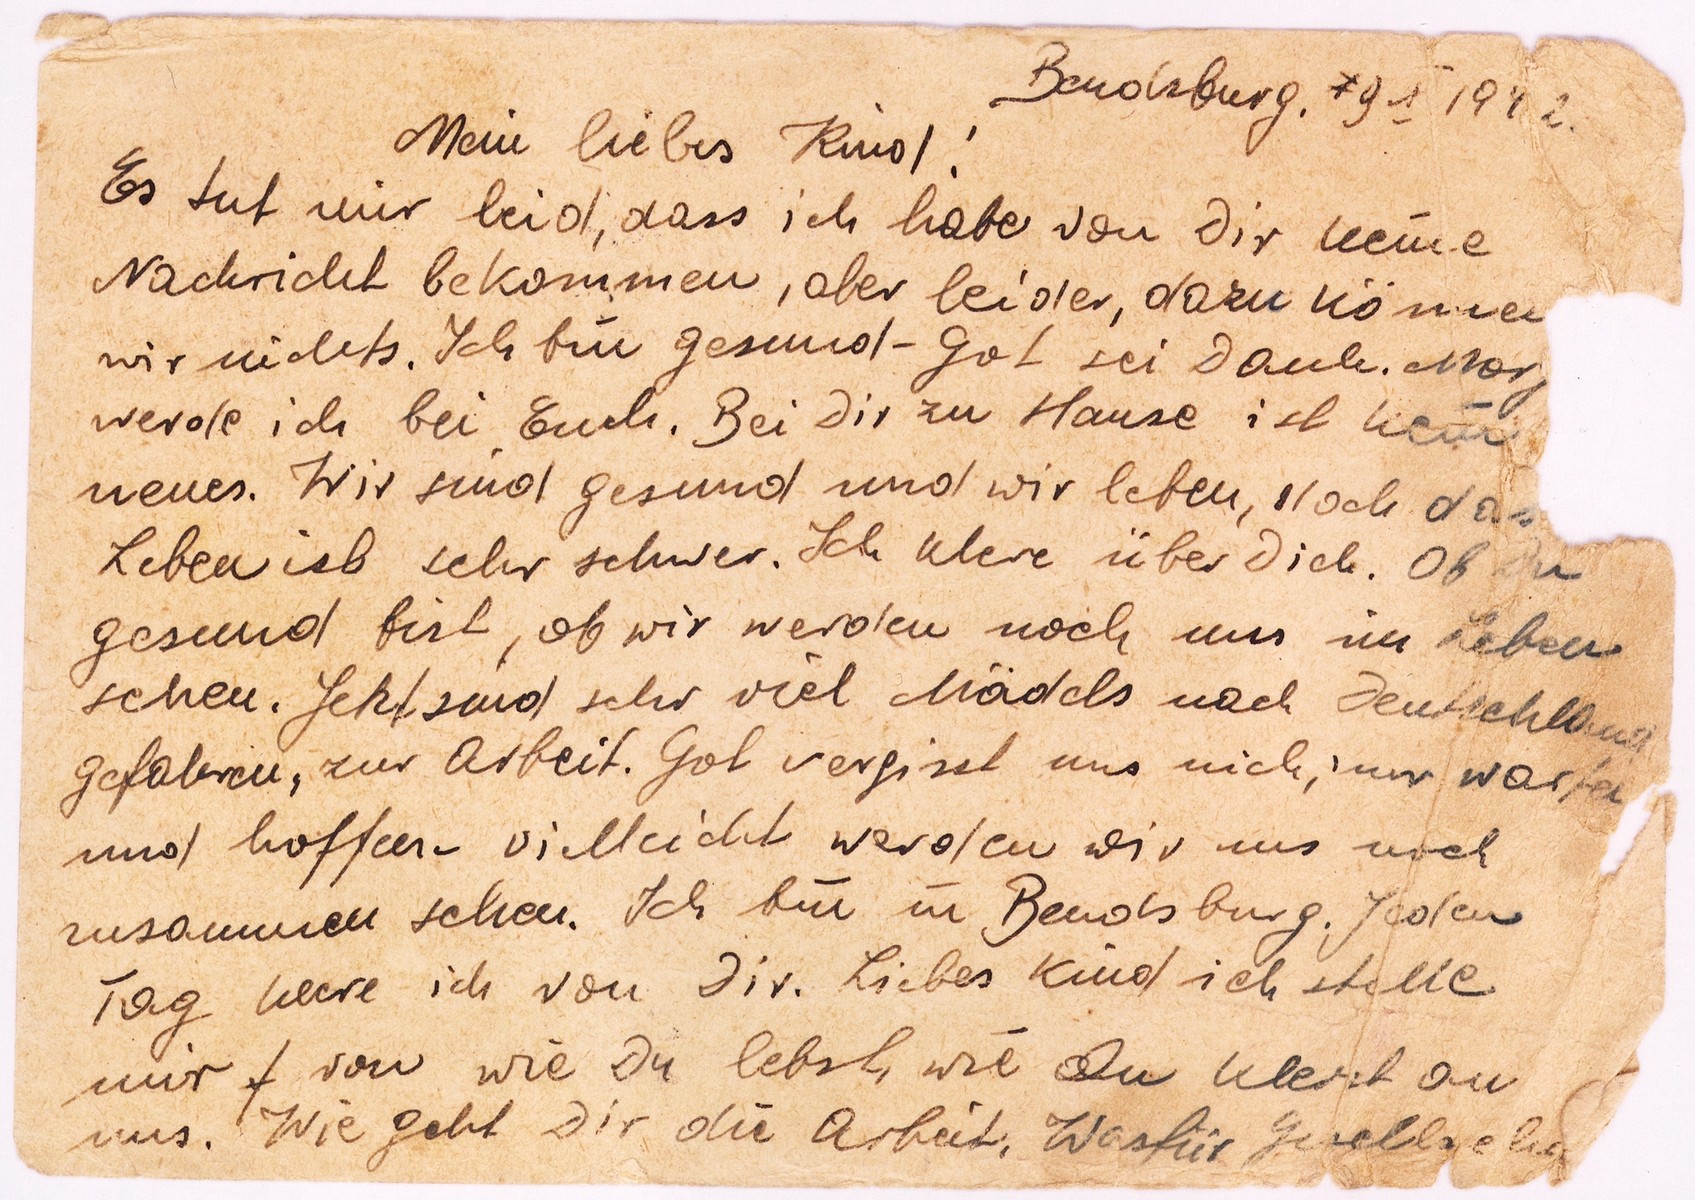 Bendsburg. 19 I 1942.
Mein liebes Kind!
Es tut mir leid, dass ich habe von Dir keine
Nachricht bekommen, aber leider, dazu können
wir nichts. Ich bin gesund - Got sei Dank. Morg
werde ich bei Euch. Bei Dir zu Hause ist kein
neues. Wir sind gesund und wir leben, doch das
Leben ist sehr schwer. Ich klere über Dich. Ob Du
gesund bist, ob wir werden noch uns im Leben
sehen. Jekt sind sehr viel Mädels nach Deutschland
gefahren, zur Arbeit. Got vergisst uns nich, nur warten
und hoffen - villeicht werden wir uns noch
zusammen sehen. Ich bin in Bendsburg. Jeden
Tag klere ich von Dir. Liebes Kind ich stelle
mir vor wie Du lebst, wie Du klerst an
uns. Wie geht Dir die Arbeit, Wasfür Gesellscha